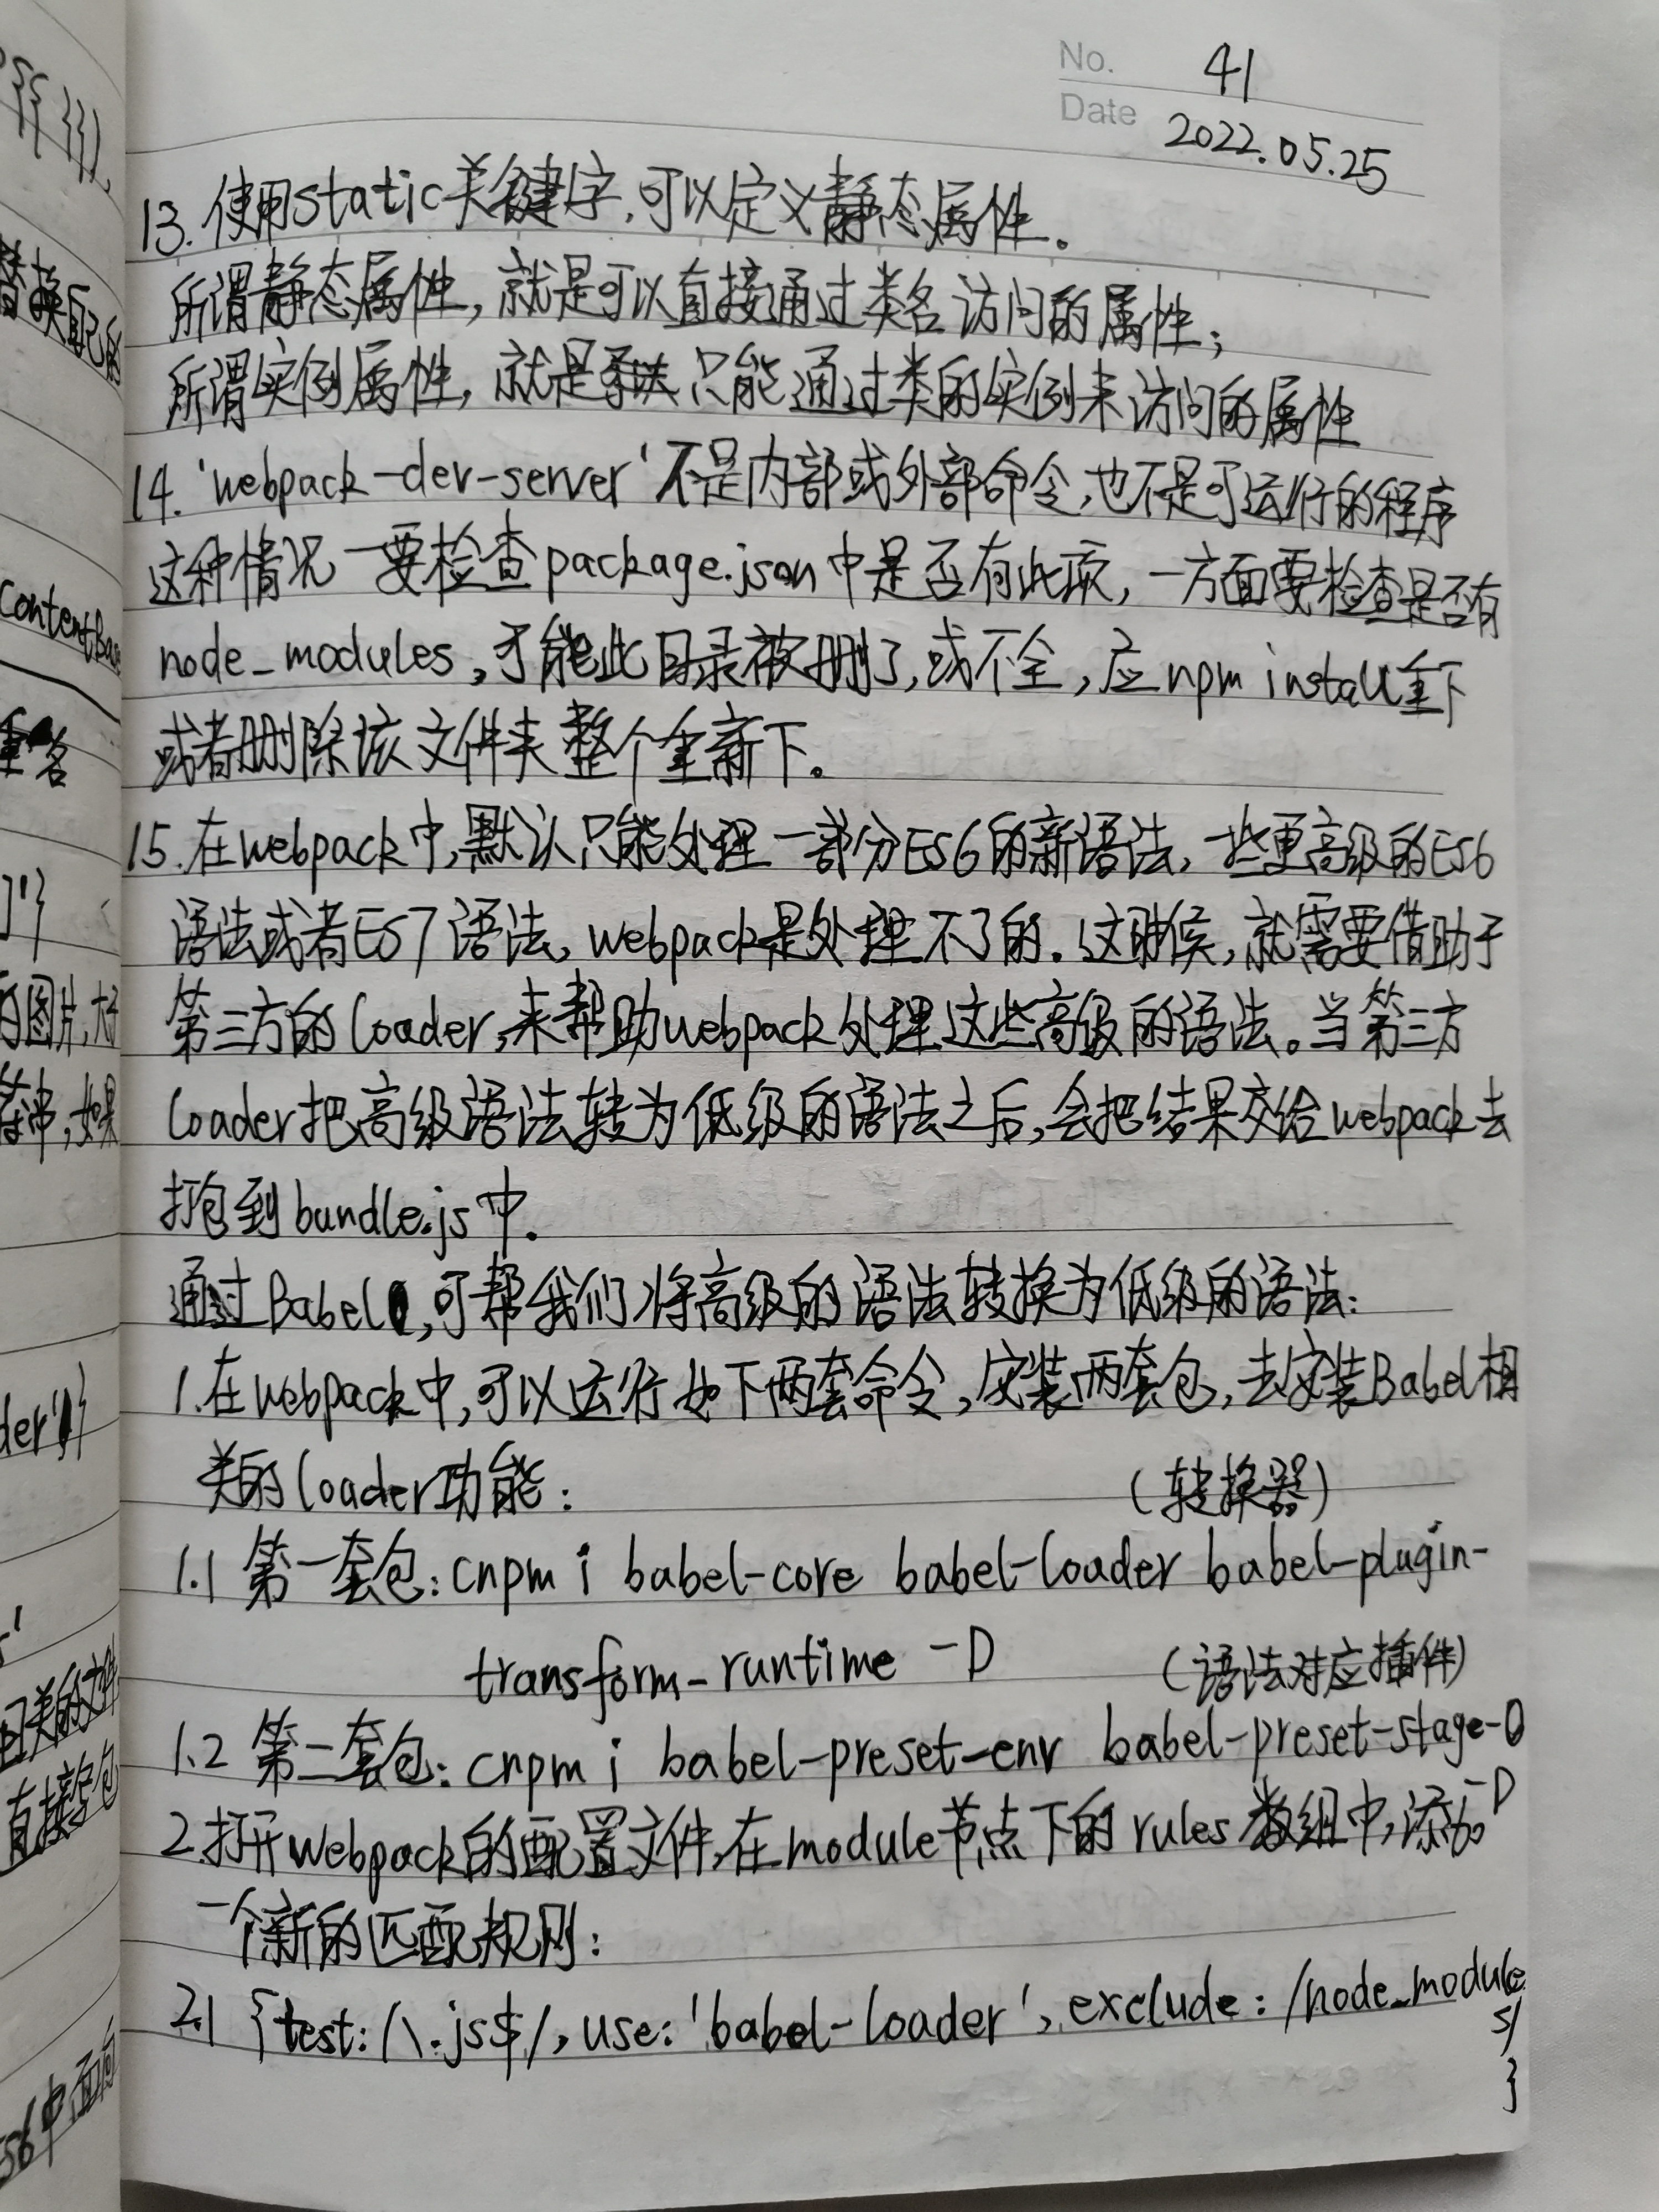 No. 41
Date 2022.05.25
13. 使用static关键字,可以定义静态属性。
所谓静态属性,就是可以直接通过类名访问的属性;
所谓实例属性,就是只能通过类的实例来访问的属性
14. 'webpack-dev-server'不是内部或外部命令,也不是可运行的程序
这种情况一要检查package.json中是否有此项,一方面要检查是否有
node_modules,可能此目录被删了,或不全,应npm install重下
或者删除该文件夹整个重新下。
15.在webpack中,默认只能处理一部分ES6的新语法,一些更高级的ES6
语法或者ES7语法,webpack是处理不了的.这时候,就需要借助于
第三方的loader,来帮助webpack处理这些高级的语法。当第三方
loader把高级语法转为低级的语法之后,会把结果交给webpack去
打包到bundle.js中.
通过Babel,可帮我们将高级的语法转换为低级的语法:
1.在webpack中,可以运行如下两套命令,安装两套包,去安装Babel相
关的loader功能:
(转换器)
1.1 第一套包:cnpm i babel-core babel-loader babel-plugin-
transform-runtime -D
(语法对应插件)
1.2 第二套包:cnpm i babel-preset-env babel-preset-stage-0
-D
2.打开webpack的配置文件,在module节点下的rules数组中,添加
一个新的匹配规则:
2.1 {test:/\.js$/,use:'babel-loader',exclude:/node_module
s/
}
替换
ContentBase
重名
]'}
的图片,大于
符串,如果
der'}
直接